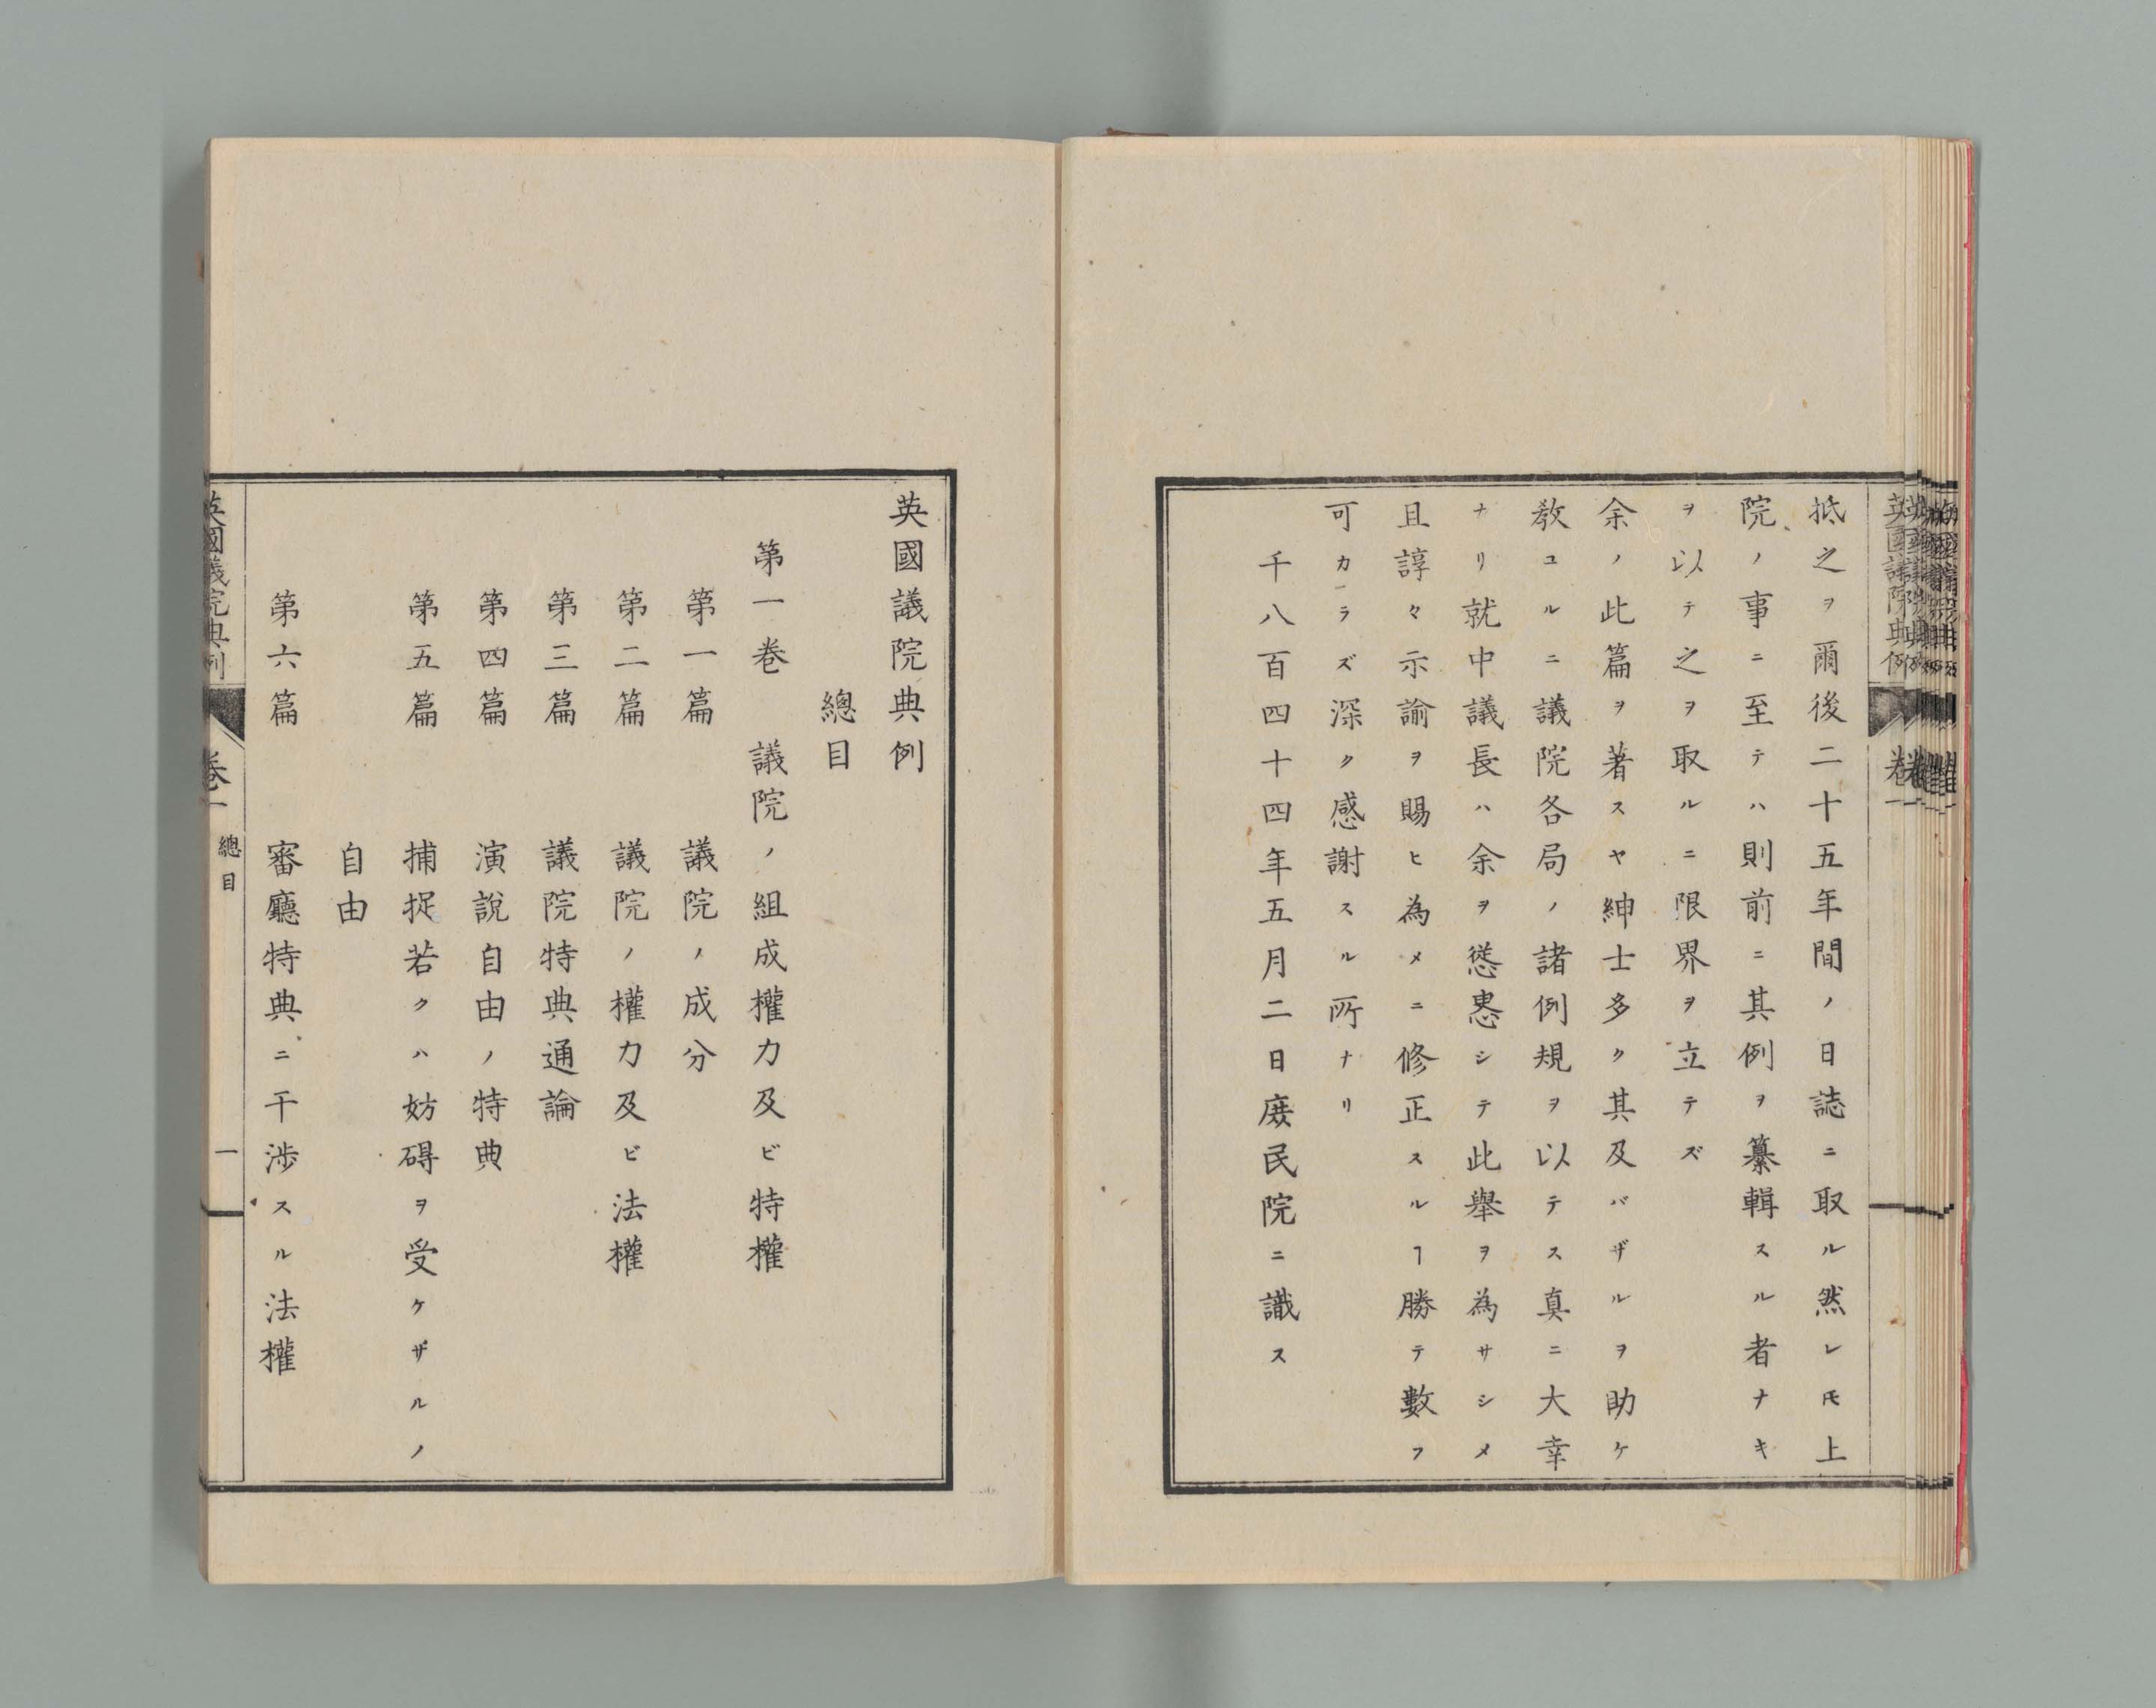 抵之ヲ爾後二十五年間ノ日誌ニ取ル然レ𪜈上
院ノ事ニ至テハ則前ニ其例ヲ纂輯スル者ナキ
ヲ以テ之ヲ取ルニ限界ヲ立テズ
余ノ此篇ヲ著スヤ紳士多ク其及バザルヲ助ケ
教ユルニ議院各局ノ諸例規ヲ以テス真ニ大幸
ナリ就中議長ハ余ヲ慫慂シテ此舉ヲ為サシメ
且諄々示諭ヲ賜ヒ為メニ修正スルヿ勝テ數フ
可カラズ深ク感謝スル所ナリ
千八百四十四年五月二日庻民院ニ識ス
英國議院典例
總目
第一巻 議院ノ組成權力及ビ特權
第一篇 議院ノ成分
第二篇 議院ノ權力及ビ法權
第三篇 議院特典通論
第四篇 演說自由ノ特典
第五篇 捕捉若クハ妨碍ヲ受ケザルノ
自由
第六篇 審廳特典ニ干渉スル法權
英國議院典例 巻一 總目 一